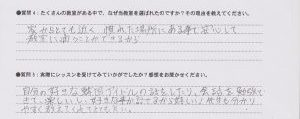 ●質問4：たくさんの教室がある中で、なぜ当教室を選ばれたのですか？その理由を教えてください。
家からとても近く、慣れた場所にある事で安心して
教室に通うことができるから
●質問5：実際にレッスンを受けてみていかがでしたか？感想をお聞かせください。
自分の好きな韓国アイドルの話をしたり、会話を勉強
できて、楽しいし、好きな事が出てるから嬉しい！先生も分かり
やすく教えてくださるから